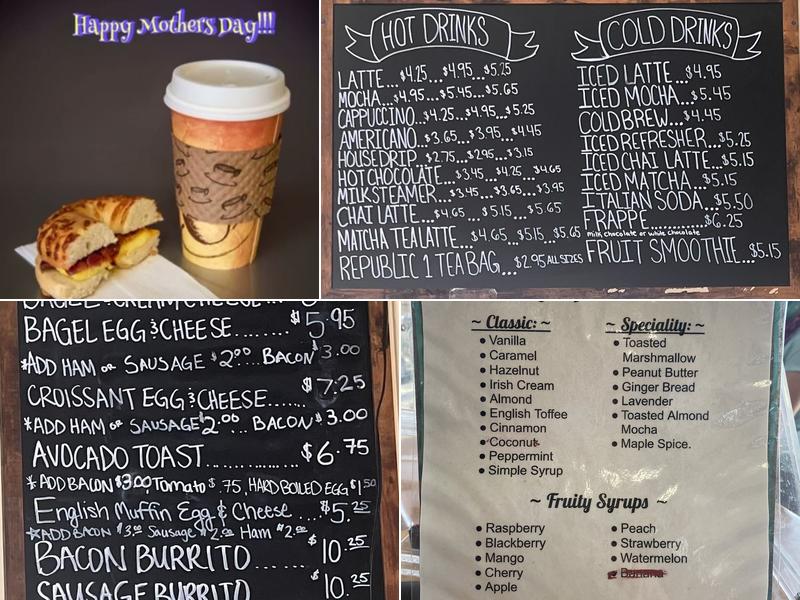 Happy Mothers Day!!!
HOT DRINKS
LATTE...$4.25...$4.95...$5.25
MOCHA...$4.95...$5.45...$5.65
CAPPUCCINO...$4.25...$4.95...$5.25
AMERICANO...$3.65...$3.95...$4.45
HOUSE DRIP...$2.75...$2.95...$3.15
HOT CHOCOLATE...$3.45...$4.25...$4.65
MILK STEAMER...$3.45...$3.65...$3.95
CHAI LATTE...$4.65...$5.15...$5.65
MATCHA TEA LATTE...$4.65...$5.15...$5.65
REPUBLIC 1 TEA BAG...$2.95 ALL SIZES
COLD DRINKS
ICED LATTE...$4.95
ICED MOCHA...$5.45
COLD BREW...$4.45
ICED REFRESHER...$5.25
ICED CHAI LATTE...$5.15
ICED MATCHA...$5.15
ITALIAN SODA...$5.50
FRAPPE.........$6.25
milk chocolate or white chocolate
FRUIT SMOOTHIE...$5.15
BAGEL & CREAM CHEESE...
BAGEL EGG & CHEESE........$5.95
*ADD HAM or SAUSAGE $2.00... BACON $3.00
CROISSANT EGG & CHEESE......$7.25
*ADD HAM or SAUSAGE $2.00... BACON $3.00
AVOCADO TOAST..............$6.75
*ADD BACON $3.00, Tomato $.75, HARD BOILED EGG $1.50
English Muffin Egg & Cheese...$5.25
*ADD BACON $3.00 Sausage $2.00 Ham $2.00
BACON BURRITO......$10.25
SAUSAGE BURRITO $10.25
~ Classic: ~
• Vanilla
• Caramel
• Hazelnut
• Irish Cream
• Almond
• English Toffee
• Cinnamon
• Coconut
• Peppermint
• Simple Syrup
~ Speciality: ~
• Toasted
Marshmallow
• Peanut Butter
• Ginger Bread
• Lavender
• Toasted Almond
Mocha
• Maple Spice.
~ Fruity Syrups ~
• Raspberry
• Blackberry
• Mango
• Cherry
• Apple
• Peach
• Strawberry
• Watermelon
• Banana